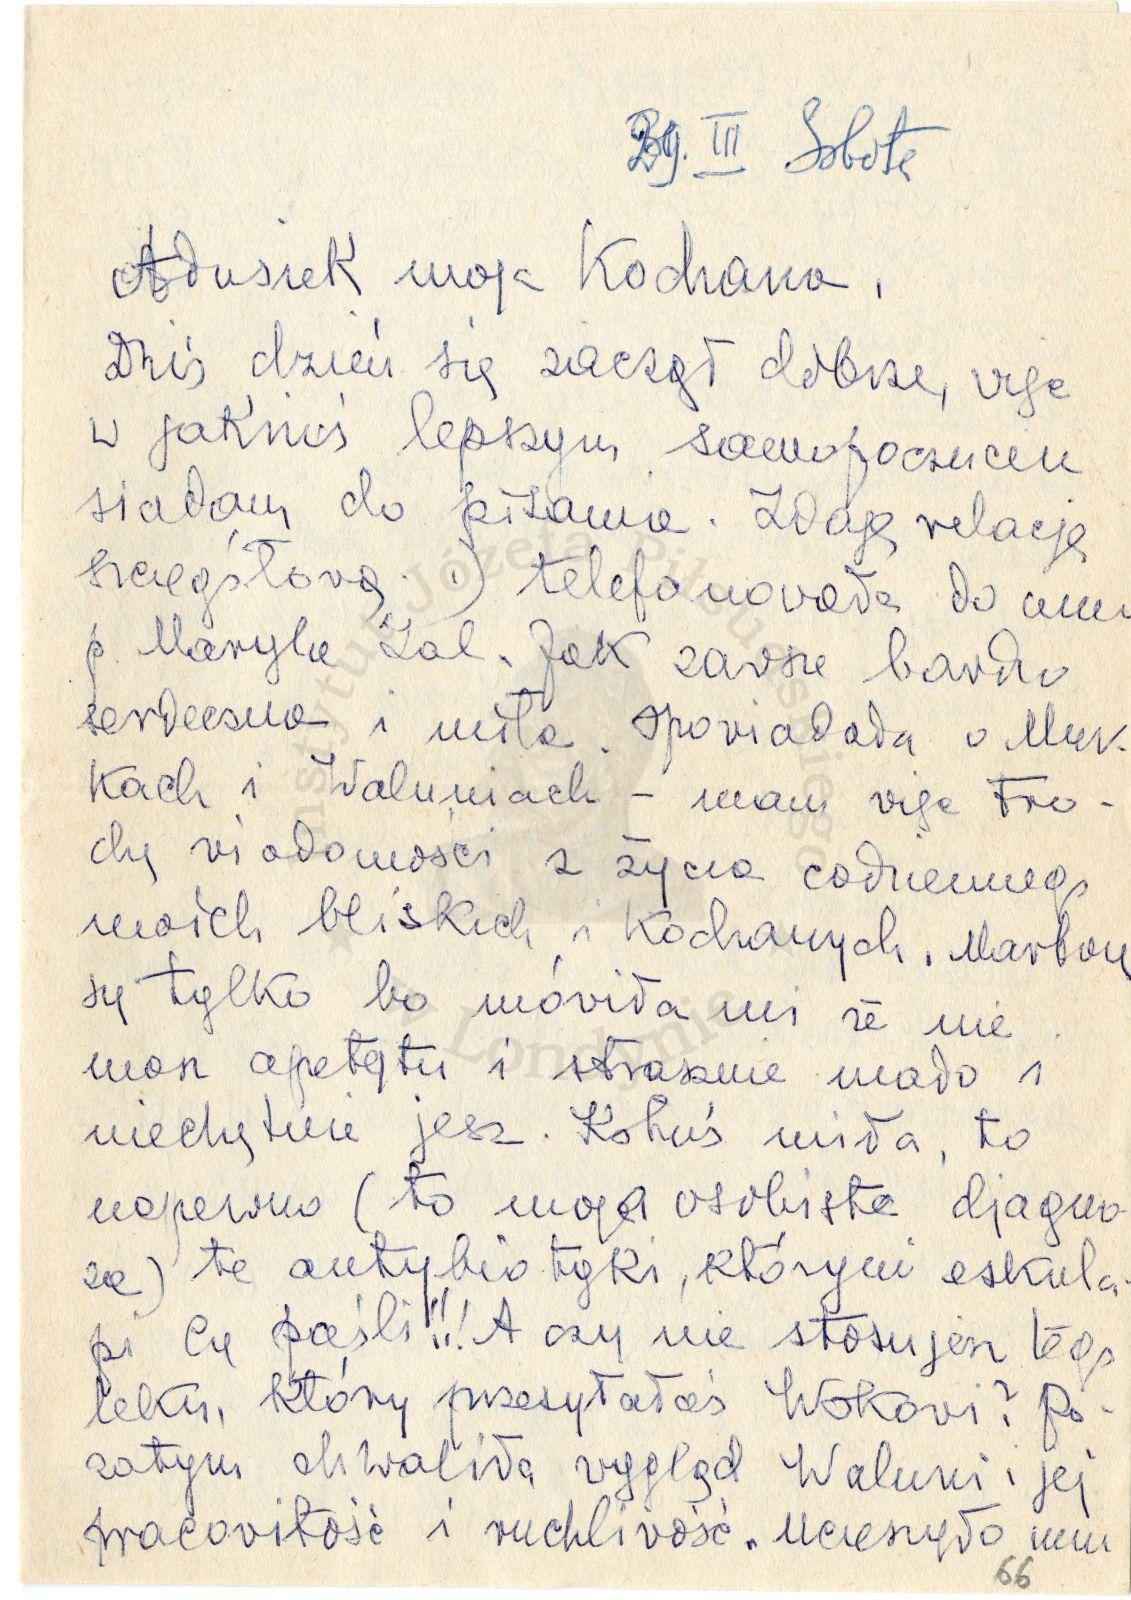 29. III Sobota
Adusiek moja Kochana,
Dziś dzień się zaczął dobrze, więc
w jakimś lepszym samopoczuciu
siadam do pisania. Zdaję relację
szczegółową. 1) telefonowała do mnie
p. Maryla Zal. Jak zawsze bardzo
serdeczna i miła. Opowiadała o Mur-
kach i Waluniach – mam więc tro-
chę wiadomości z życia codziennego
moich bliskich i kochanych. Martwię
się tylko bo mówiła mi że nie
masz apetytu i strasznie mało i
niechętnie jesz. Kotuś miła, to
napewno (to moja osobista djagno-
za) te antybiotyki, którymi eskula-
pi Cię paśli!!! A czy nie stosujesz tego
leku, który przesyłałaś Wokowi? Po-
zatym chwaliła wygląd Waluni i jej
pracowitość i ruchliwość. Ucieszyło mnie
66
Instytut Józefa Piłsudskiego
w Londynie